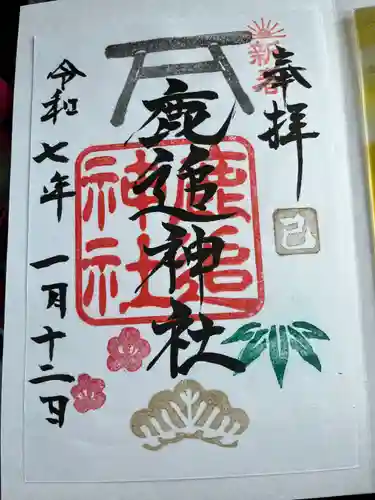 奉拝
新春
鹿追神社
鹿追神社
己
令和七年一月十二日